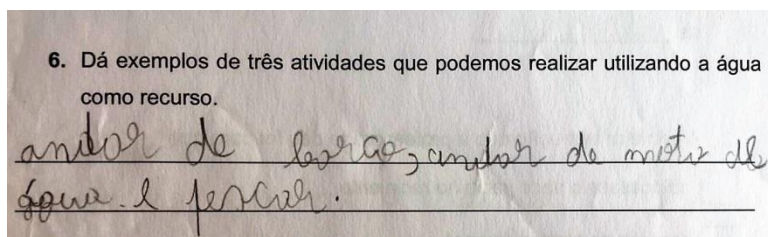 6. Dá exemplos de três atividades que podemos realizar utilizando a água
como recurso.
andar de barco, andar de mota de
água. e pescar.